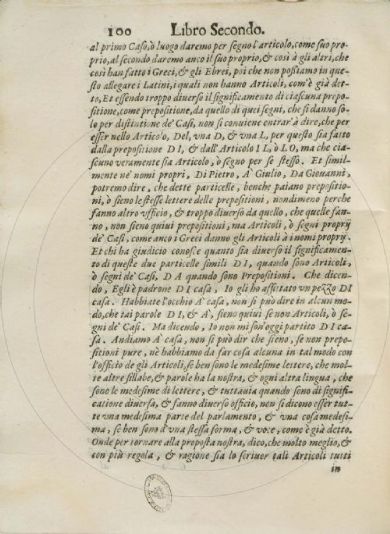 100 Libro Secondo.
al primo Caso, ò luogo daremo per segno l'articolo, come suo pro-
prio, al secondo daremo anco il suo proprio, & così à gli altri, che
così han fatto i Greci, & gli Ebrei, poi che non possiamo in que-
sto allegare i Latini, i quali non hanno Articoli, com'è già det-
to, Et essendo troppo diverso il significamento di ciascuna prepo-
sitione, come prepositione, da quello di quei segni, che si danno so-
lo per distintione de' Casi, non si conviene entrar'à dire, che per
esser nello Articolo, Del, vna D, & vna L, per questo sia fatto
dalla prepositione DI, & dall'Articolo IL, ò LO, ma che cia-
scuno veramente sia Articolo, ò segno per se stesso. Et simil-
mente ne' nomi propri, Di Pietro, A' Giulio, Da Giouanni,
potremo dire, che dette particelle, benche paiano prepositio-
ni, ò sieno le stesse lettere delle prepositioni, nondimeno perche
fanno altro vfficio, & troppo diuerso da quello, che quelle fan-
no, non sieno quiui prepositioni, ma Articoli, ò segni proprÿ
de' Casi, come anco i Greci danno gli Articoli à i nomi proprÿ.
Et chi ha giudicio conosce quanto sia diuerso il significamen-
to di queste due particelle simili DI, quando sono Articoli,
ò segni de' Casi, DA quando sono Prepositioni. Che dicen-
do, Egli è padrone DI casa, Io gli ho affittato vn pezzo DI
casa. Habbiate l'occhio A' casa, non si può dire in alcun mo-
do, che tai parole DI, & A', sieno quiui se non Articoli, ò se-
gni de' Casi. Ma dicendo, Io non mi son'oggi partito DI ca-
sa. Andiamo A' casa, non si può dir che sieno, se non prepo-
sitioni pure, nè habbiamo da far cosa alcuna in tal modo con
l'officio de gli Articoli, se ben sono le medesime lettere, che mol-
te altre sillabe, & parole ha la nostra, & ogni altra lingua, che
sono le medesime di lettere, & tuttauia quando sono di signifi-
catione diuersa, & fanno diuerso officio, non si dicono esser tut-
te vna medesima parte del parlamento, & vna cosa medesi-
ma, se ben sono d'vna stessa forma, & voce, come è già detto.
Onde per tornare alla proposta nostra, dico, che molto meglio, &
con più regola, & ragione sia lo scriuer tali Articoli tutti
in